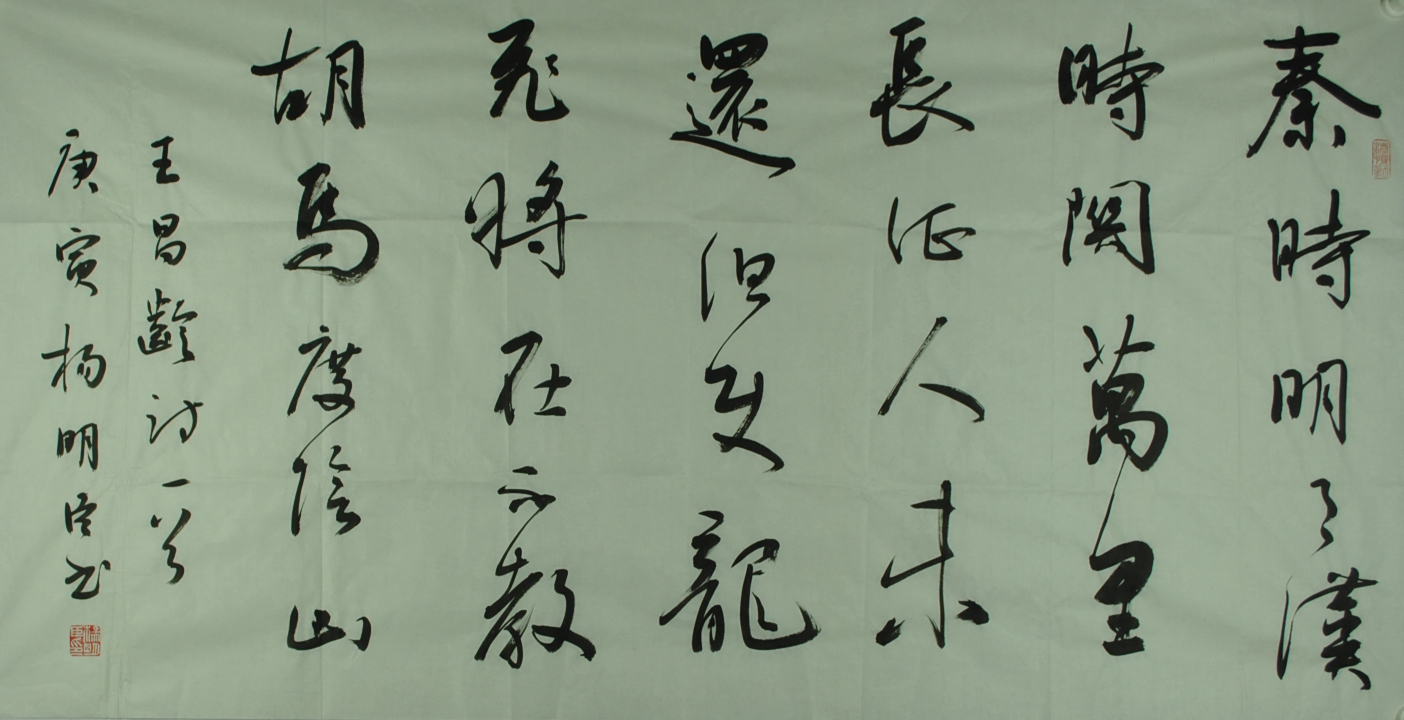 秦時明月漢
時關萬里
長征人未
還但使龍
飛將在不教
胡馬度陰山
王昌齡诗一首
庚寅杨明臣书